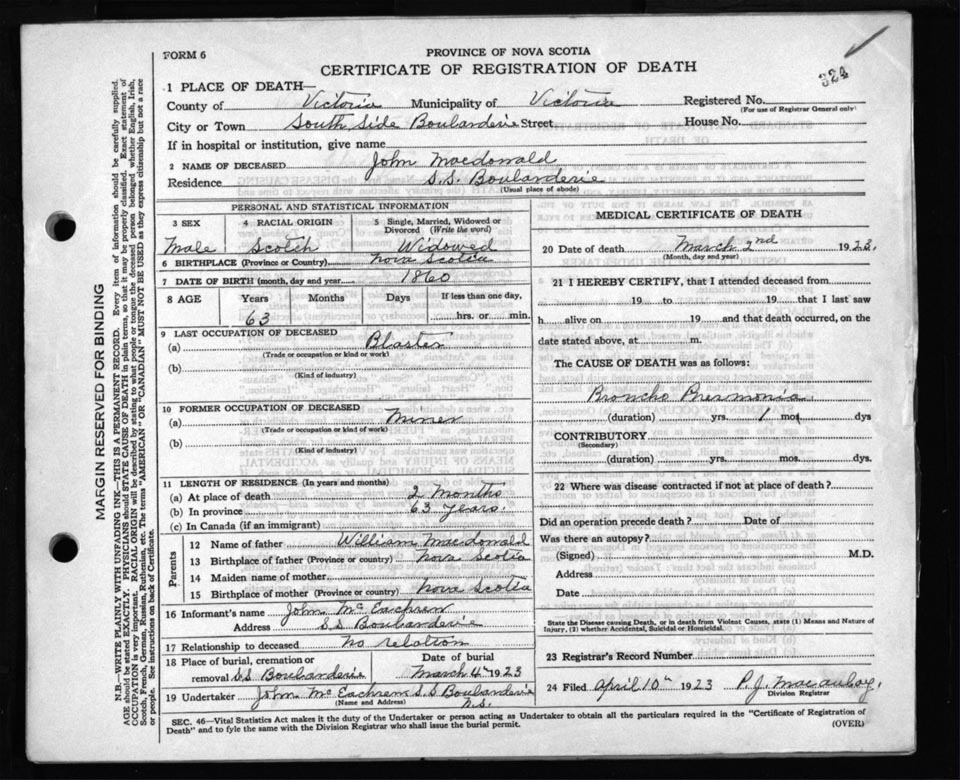 FORM 6
PROVINCE OF NOVA SCOTIA
CERTIFICATE OF REGISTRATION OF DEATH
324
1 PLACE OF DEATH—
County of Victoria Municipality of Victoria Registered No.
(For use of Registrar General only)
City or Town South Side Boularderie Street House No.
If in hospital or institution, give name
2 NAME OF DECEASED John Macdonald
Residence S.S. Boularderie
(Usual place of abode)
PERSONAL AND STATISTICAL INFORMATION
3 SEX 4 RACIAL ORIGIN 5 Single, Married, Widowed or Divorced (Write the word)
Male Scotch Widowed
6 BIRTHPLACE (Province or Country) Nova Scotia
7 DATE OF BIRTH (month, day and year) 1860
8 AGE Years Months Days If less than one day,
63 hrs. or min.
9 LAST OCCUPATION OF DECEASED
(a) Blaster
(Trade or occupation or kind or work)
(b)
(Kind of industry)
10 FORMER OCCUPATION OF DECEASED
(a) Miner
(Trade or occupation or kind of work)
(b)
(Kind of industry)
11 LENGTH OF RESIDENCE (In years and months)
(a) At place of death 2 Months
(b) In province 63 Years.
(c) In Canada (if an immigrant)
Parents
12 Name of father William Macdonald
13 Birthplace of father (Province or country) Nova Scotia
14 Maiden name of mother
15 Birthplace of mother (Province or country) Nova Scotia
16 Informant's name John McEachren
Address S.S Boularderie
17 Relationship to deceased no relation
18 Place of burial, cremation or removal S.S Boularderie
Date of burial March 4th 1923
19 Undertaker John McEachren S.S Boularderie N.S.
(Name and Address)
MEDICAL CERTIFICATE OF DEATH
20 Date of death March 2nd 1923.
(Month, day and year)
21 I HEREBY CERTIFY, that I attended deceased from
19 to 19 that I last saw
h alive on 19 and that death occurred, on the
date stated above, at m.
The CAUSE OF DEATH was as follows:
Broncho Pnermonia
(duration) yrs. 1 mos. dys
CONTRIBUTORY
(Secondary)
(duration) yrs. mos. dys.
22 Where was disease contracted if not at place of death?
Did an operation precede death? Date of
Was there an autopsy?
(Signed) M.D.
Address
Date
State the Disease causing Death, or in death from Violent Causes, state (1) Means and Nature of
Injury, (2) whether Accidental, Suicidal or Homicidal.
23 Registrar's Record Number
24 Filed April 10th 1923 P.J. Macaulay.
Division Registrar
SEC. 46—Vital Statistics Act makes it the duty of the Undertaker or person acting as Undertaker to obtain all the particulars required in the "Certificate of Registration of
Death" and to fyle the same with the Division Registrar who shall issue the burial permit.
(OVER)
MARGIN RESERVED FOR BINDING
N.B.—WRITE PLAINLY WITH UNFADING INK—THIS IS A PERMANENT RECORD. Every item of information should be carefully supplied.
AGE should be stated EXACTLY. PHYSICIANS should STATE CAUSE OF DEATH in plain terms, so that it may be properly classified. Exact statement of
OCCUPATION is very important. RACIAL ORIGIN will be described by stating to what people or tongue the deceased person belonged whether English, Irish,
Scotch, French, German, Russian, Ruthenian, etc. The terms "AMERICAN" OR "CANADIAN" MUST NOT BE USED as they express citizenship but not a race
or people. See instructions on back of Certificate.